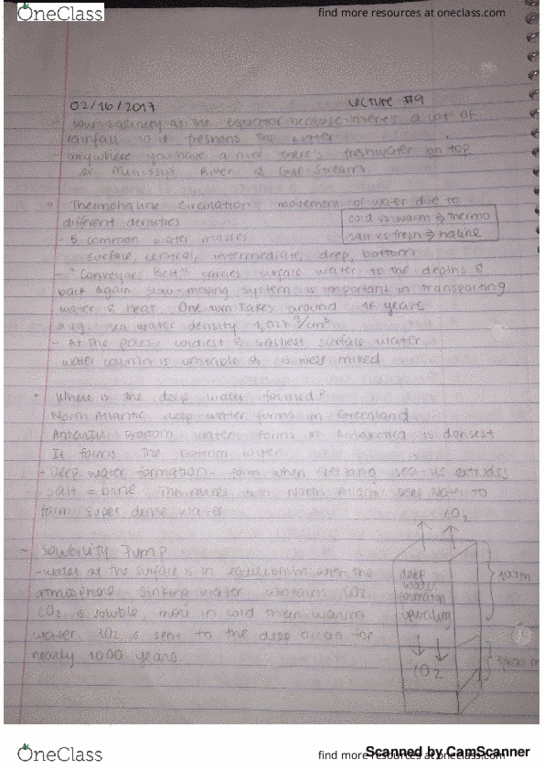 OneClass
find more resources at oneclass.com
02/16/2017 Lecture #9
- low salinity at the equator because there's a lot of
rainfall so it freshens the water
- anywhere you have a river there's freshwater on top
ex. Mississippi River & Gulf Stream
• Thermohaline Circulation: movement of water due to
different densities
cold vs warm ⇒ thermo
salt vs fresh ⇒ haline
- 5 common water masses
surface, central, intermediate, deep, bottom
- "Conveyor Belt" carries surface water to the depths &
back again. Slow-moving system is important in transporting
water & heat. One turn takes around 1k years
water density 1,027
- At the poles, coldest & saltiest surface water
water column is unstable & is well mixed
• Where is the deep water formed?
North Atlantic deep water forms in Greenland
Antarctic Bottom water forms in Antarctica is densest
It forms the bottom layer
- Deep water formation: form when freezing sea-ice extrudes
salt = brine. This mixes with North Atlantic Deep Water to
form super dense water
CO2
- Solubility Pump
- water at the surface is in equilibrium with the
atmosphere. Sinking water contains CO2
CO2 is soluble more in cold than warm
water. CO2 is sent to the deep ocean for
nearly 1000 years
deep
water
formation
upwelling
100m
CO2
OneClass
find more resources at oneclass.com
Scanned by CamScanner